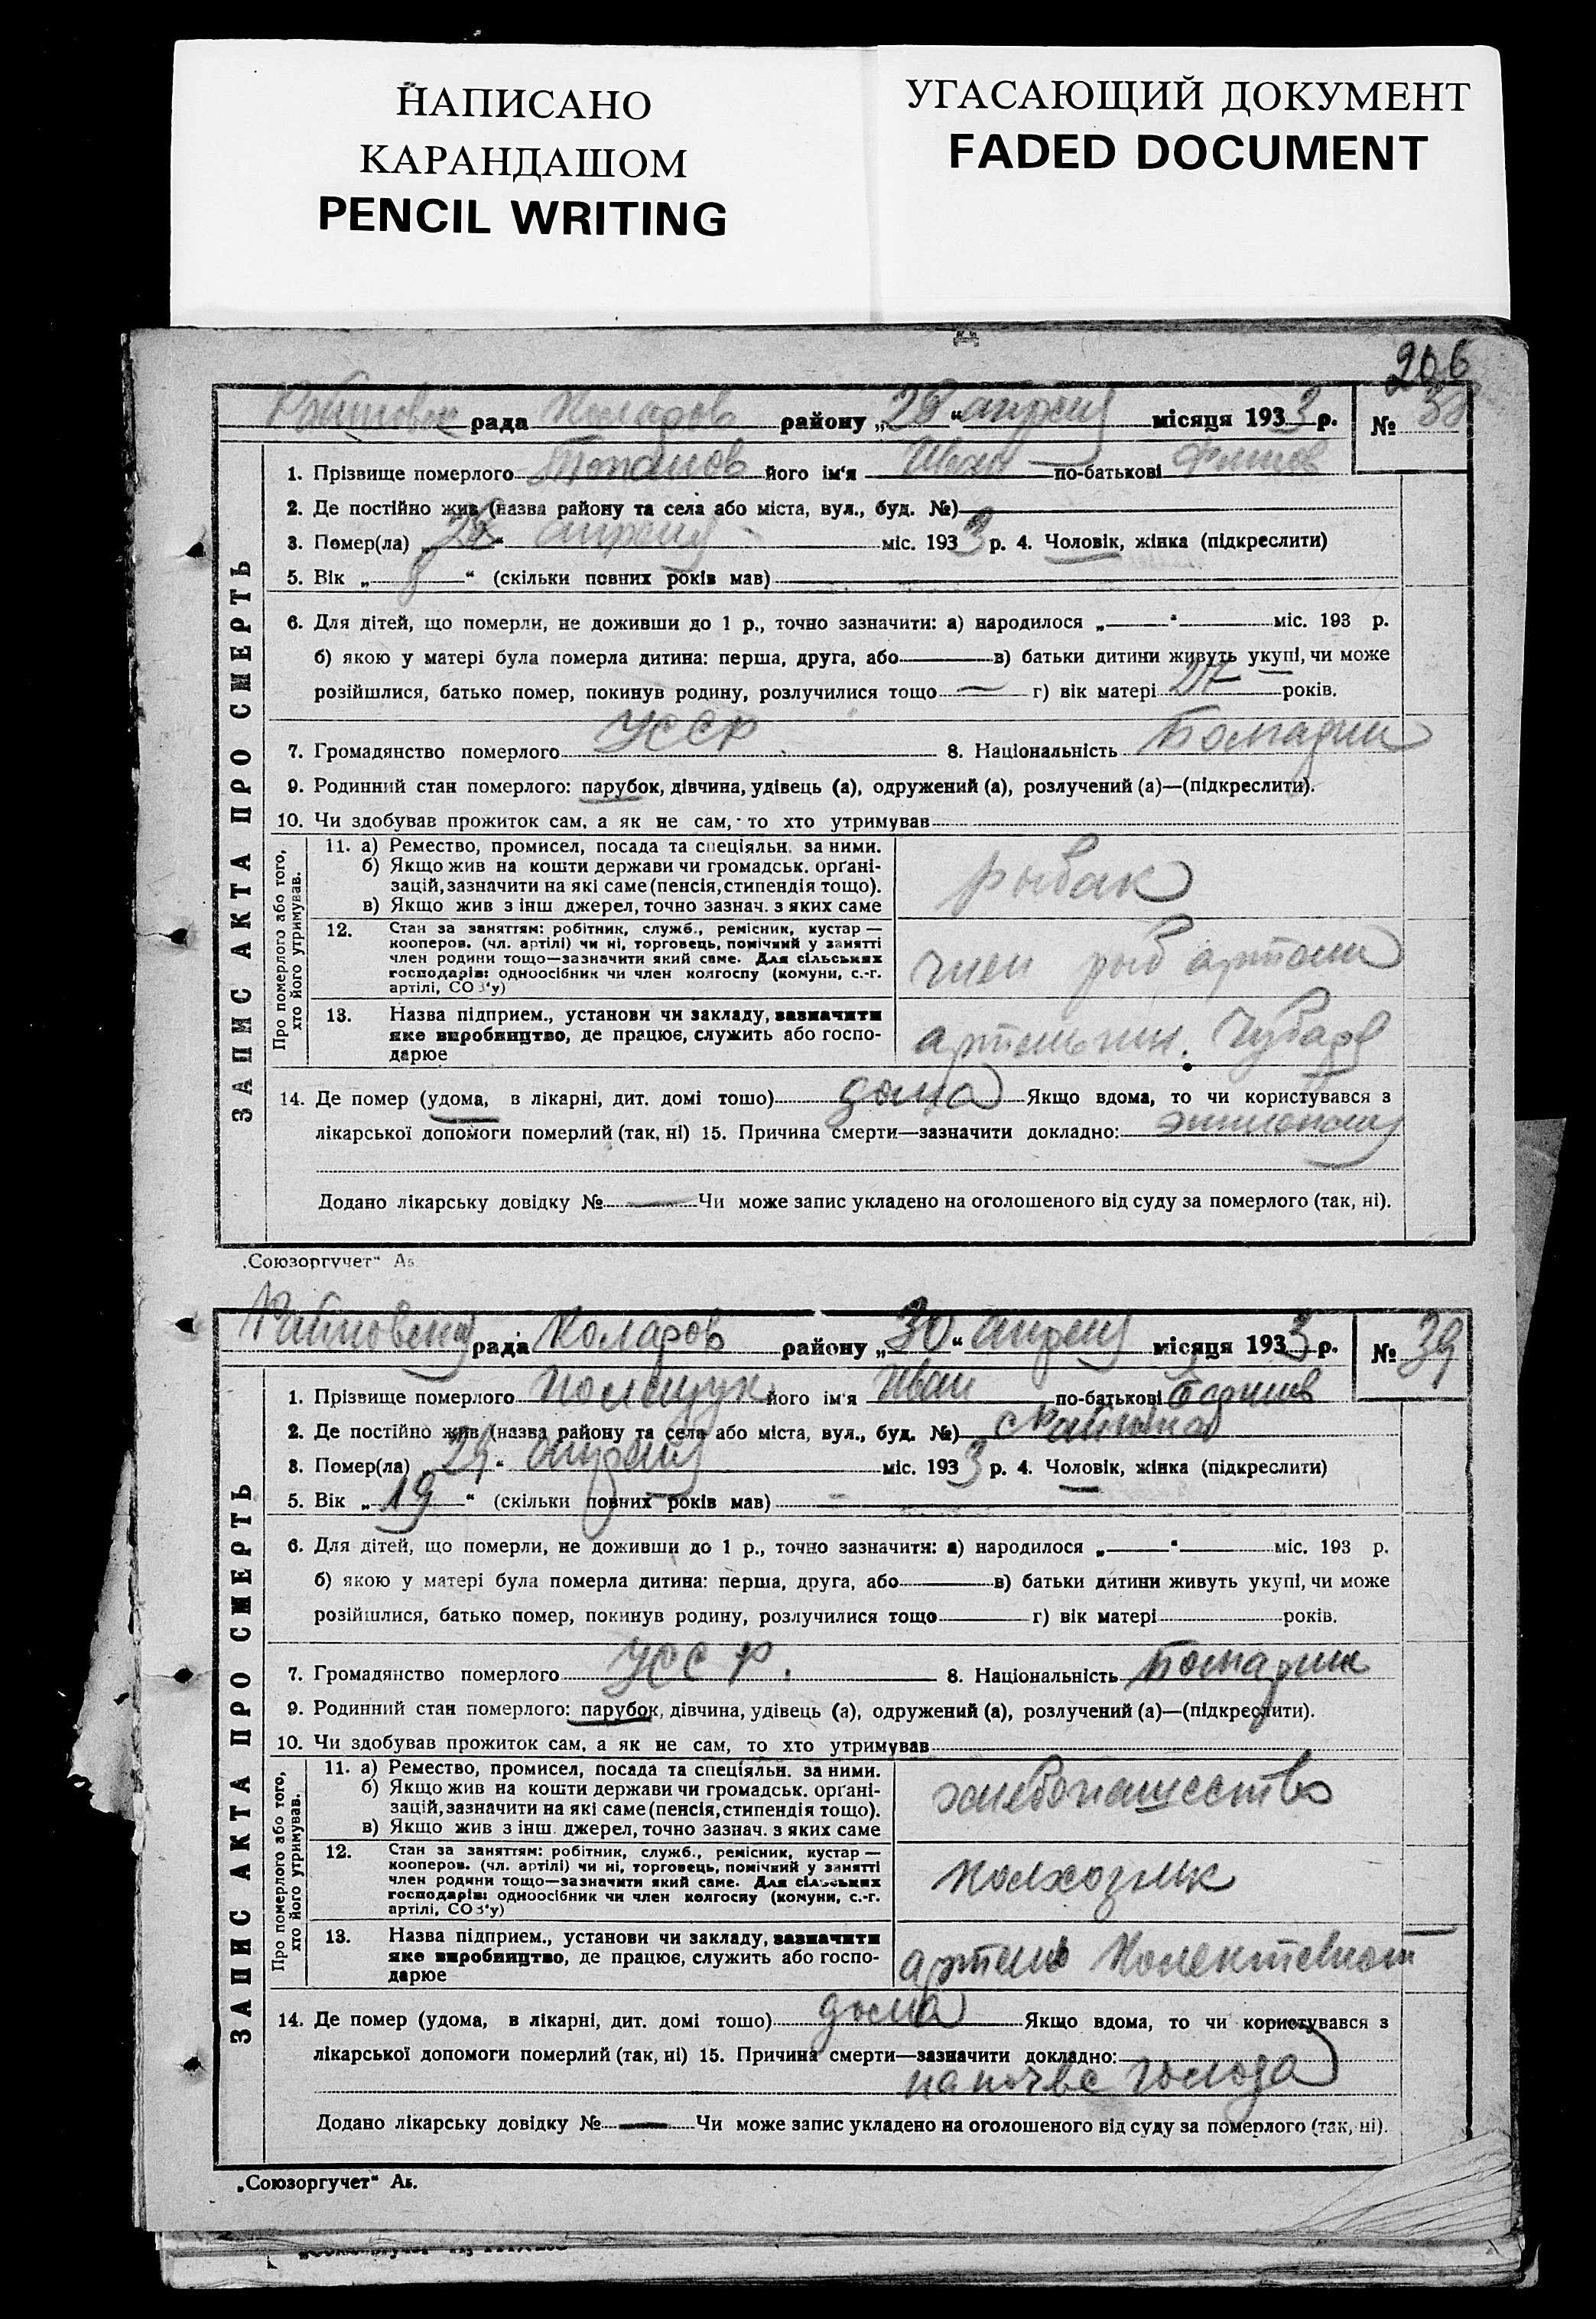 НАПИСАНО
КАРАНДАШОМ
PENCIL WRITING
УГАСАЮЩИЙ ДОКУМЕНТ
FADED DOCUMENT
206
рада Коларов району „28“ апреля місяця 1933 р. № 38
1. Прізвище померлого його ім'я по-батькові
2. Де постійно жив (назва району та села або міста, вул., буд. №)
3. Помер(ла) „28“ апреля міс. 1933 р. 4. Чоловік, жінка (підкреслити)
5. Вік „8“ (скільки повних років мав)
6. Для дітей, що померли, не доживши до 1 р., точно зазначити: а) народилося „ “ міс. 193 р.
б) якою у матері була померла дитина: перша, друга, або в) батьки дитини живуть укупі, чи може
розійшлися, батько помер, покинув родину, розлучилися тощо г) вік матері 27 років.
7. Громадянство померлого УССР 8. Національність Болгарин
9. Родинний стан померлого: парубок, дівчина, удівець (а), одружений (а), розлучений (а)—(підкреслити).
10. Чи здобував прожиток сам, а як не сам, то хто утримував
ЗАПИС АКТА ПРО СМЕРТЬ
Про померлого або того, хто його утримував.
11. а) Ремество, промисел, посада та спеціяльн. за ними.
б) Якщо жив на кошти держави чи громадськ. орґані-
зацій, зазначити на які саме (пенсія, стипендія тощо).
в) Якщо жив з інш джерел, точно зазнач. з яких саме
рыбак
12. Стан за заняттям: робітник, служб., ремісник, кустар —
кооперов. (чл. артілі) чи ні, торговець, помічний у занятті
член родини тощо—зазначити який саме. Для сільських
господарів: одноосібник чи член колгоспу (комуни, с.-г.
артілі, СОЗ'у)
член рыб артели
13. Назва підприєм., установи чи закладу, зазначити
яке виробництво, де працює, служить або госпо-
дарює
артель им. Чубаря
14. Де помер (удома, в лікарні, дит. домі тощо) дома Якщо вдома, то чи користувався з
лікарської допомоги померлий (так, ні) 15. Причина смерти—зазначити докладно:
Додано лікарську довідку № Чи може запис укладено на оголошеного від суду за померлого (так, ні).
„Союзоргучет“
рада Коларов району „30“ апреля місяця 1933 р. № 39
1. Прізвище померлого його ім'я Иван по-батькові
2. Де постійно жив (назва району та села або міста, вул., буд. №)
3. Помер(ла) „29“ апреля міс. 1933 р. 4. Чоловік, жінка (підкреслити)
5. Вік „19“ (скільки повних років мав)
6. Для дітей, що померли, не доживши до 1 р., точно зазначити: а) народилося „ “ міс. 193 р.
б) якою у матері була померла дитина: перша, друга, або в) батьки дитини живуть укупі, чи може
розійшлися, батько помер, покинув родину, розлучилися тощо г) вік матері років.
7. Громадянство померлого УССР. 8. Національність Болгарин
9. Родинний стан померлого: парубок, дівчина, удівець (а), одружений (а), розлучений (а)—(підкреслити).
10. Чи здобував прожиток сам, а як не сам, то хто утримував
ЗАПИС АКТА ПРО СМЕРТЬ
Про померлого або того, хто його утримував.
11. а) Ремество, промисел, посада та спеціяльн. за ними.
б) Якщо жив на кошти держави чи громадськ. орґані-
зацій, зазначити на які саме (пенсія, стипендія тощо).
в) Якщо жив з інш. джерел, точно зазнач. з яких саме
хлебопашество
12. Стан за заняттям: робітник, служб., ремісник, кустар —
кооперов. (чл. артілі) чи ні, торговець, помічний у занятті
член родини тощо—зазначити який саме. Для сільських
господарів: одноосібник чи член колгоспу (комуни, с.-г.
артілі, СОЗ'у)
колхозник
13. Назва підприєм., установи чи закладу, зазначити
яке виробництво, де працює, служить або госпо-
дарює
артель
14. Де помер (удома, в лікарні, дит. домі тощо) дома Якщо вдома, то чи користувався з
лікарської допомоги померлий (так, ні) 15. Причина смерти—зазначити докладно:
на почве голода
Додано лікарську довідку № Чи може запис укладено на оголошеного від суду за померлого (так, ні).
„Союзоргучет“